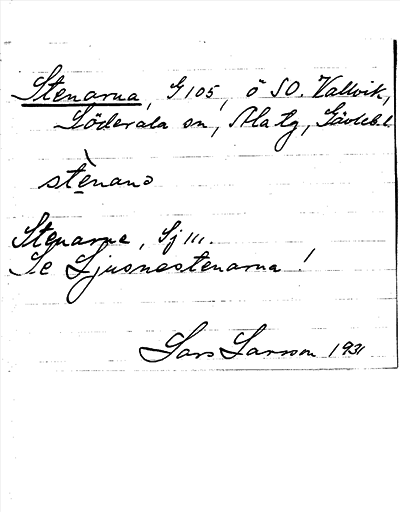 Stenarna, G 105, ö SO. Vallvik,
Söderala sn, Ala tg, Gävleb. l.
stenanɔ
Stenarne, Sj 111.
Se Ljusnestenarna!
Lars Larsson 1931